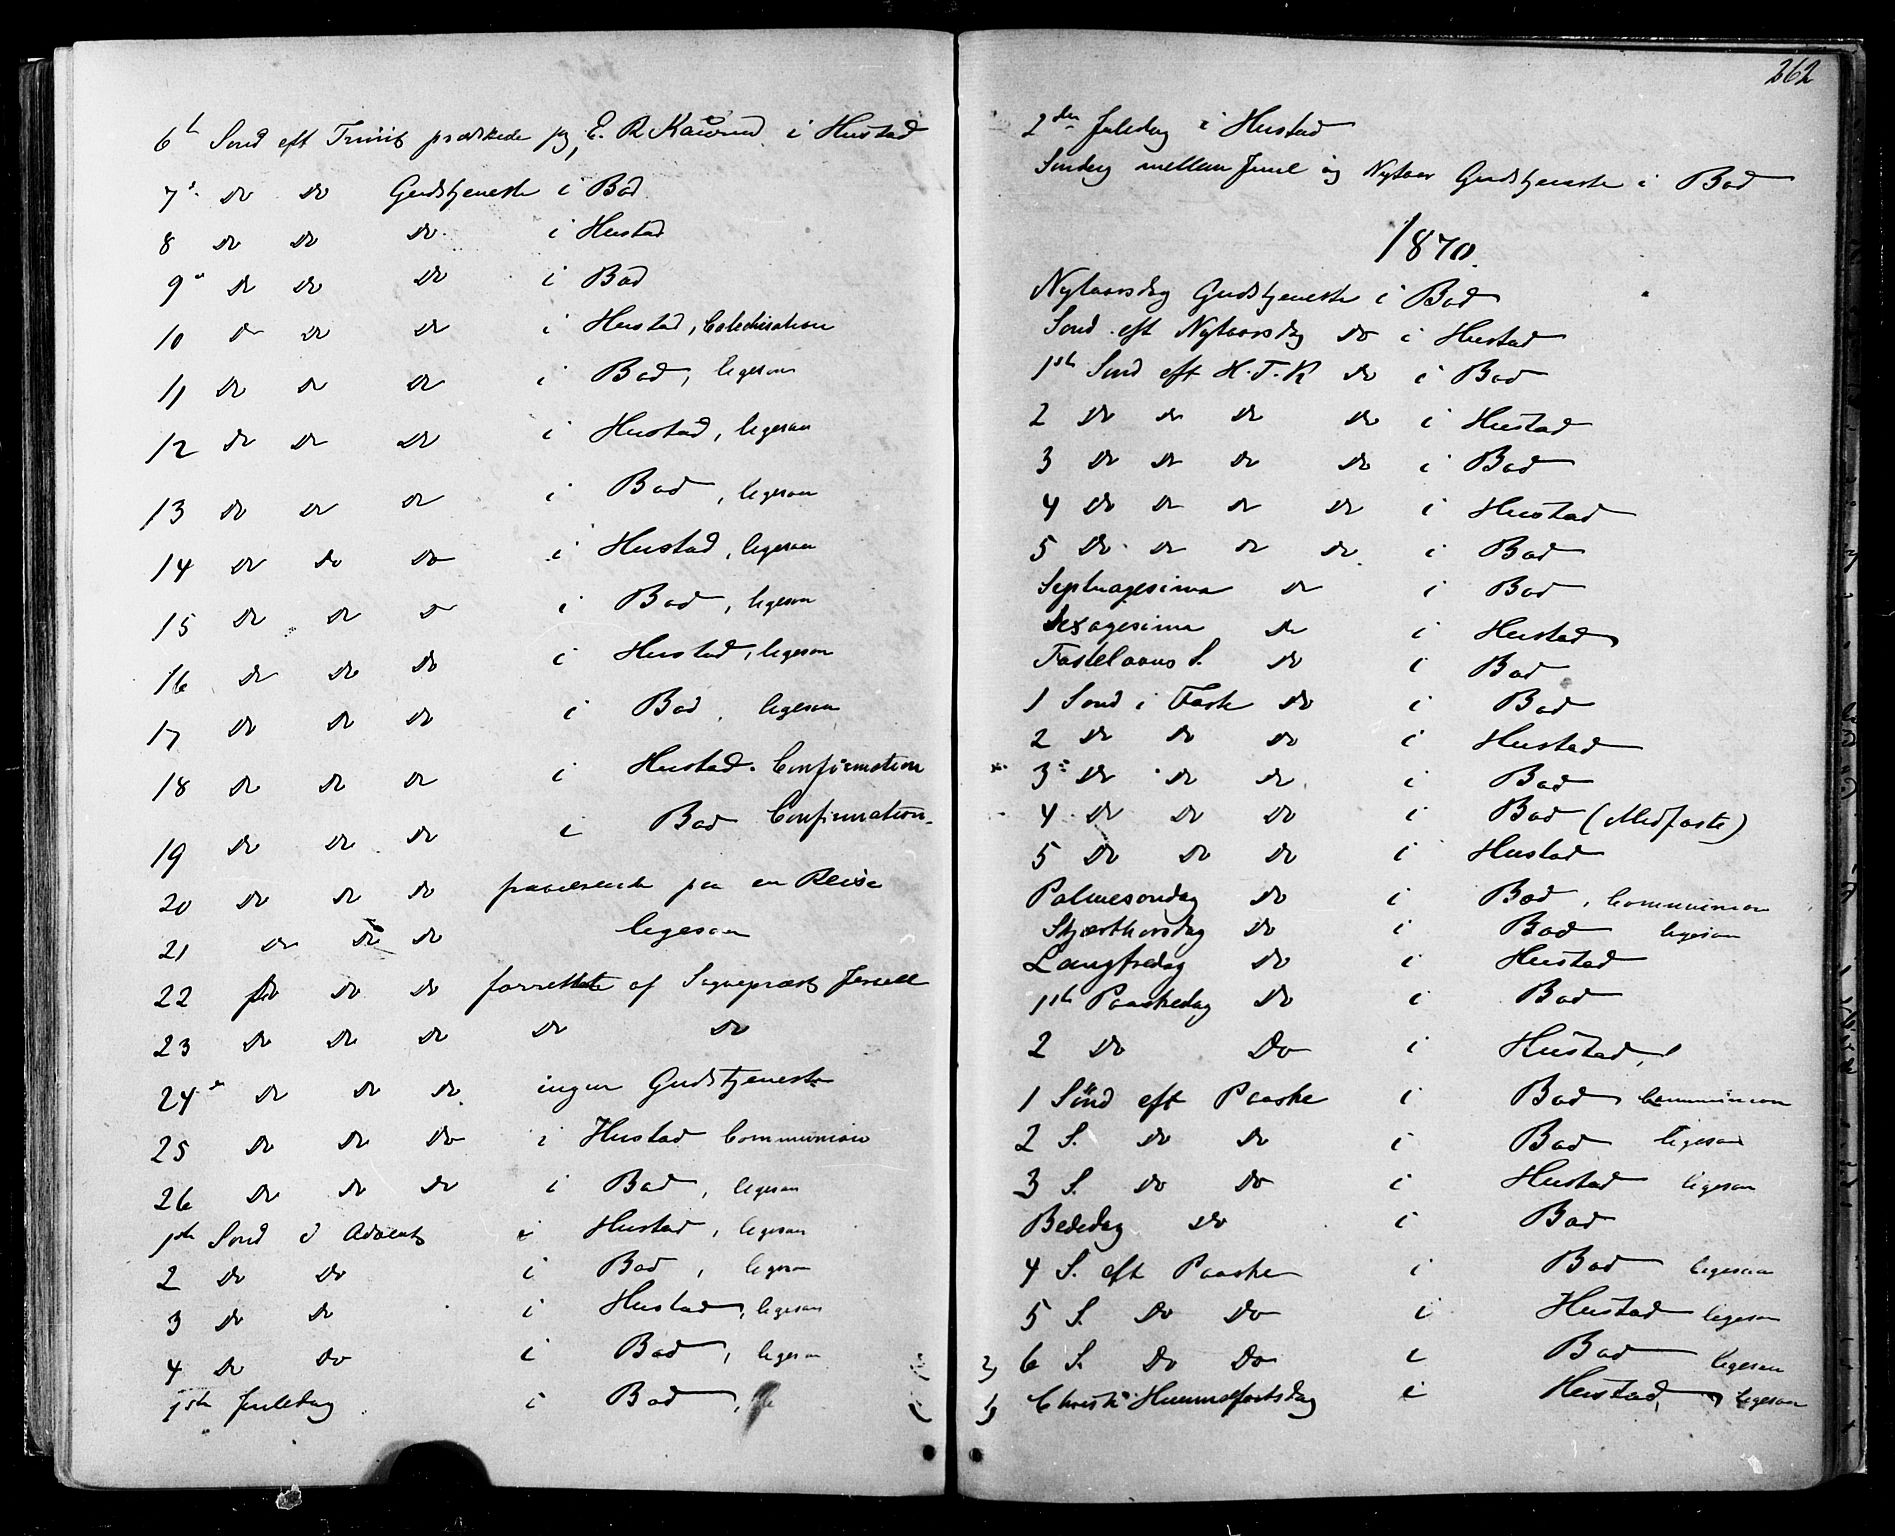 6t Sønd eft Trinit prædikede jeg, E. R. i Hustad
7d Do Do Gudstjeneste i Bod
8 Do Do Do i Hustad
9d Do Do Do i Bod
10 Do Do Do i Hustad, Catechisation
11 Do Do Do i Bod, ligesaa
12 Do Do Do i Hustad, ligesaa
13 Do Do Do i Bod, ligesaa
14 Do Do Do i Hustad, ligesaa
15 Do Do Do i Bod, ligesaa
16 Do Do Do i Hustad, ligesaa
17 Do Do Do i Bod, ligesaa
18 Do Do Do i Hustad. Confirmation
19 Do Do Do i Bod Confirmation.
20 Do Do Do fraværende paa en Reise
21 Do Do Do ligesaa
22 Do Do Do forrettede af Sognepræst
23 Do Do Do Do Do
24de Do Do Do ingen Gudstjeneste
25 Do Do Do i Hustad Communion
26 Do Do Do i Bod, ligesaa
1ste Sønd i Advent i Hustad, ligesaa
2 Do Do i Bod, ligesaa
3 Do Do i Hustad, ligesaa
4 Do Do i Bod, ligesaa
1ste Juledag i Bod,
262
2den Juledag i Hustad
Søndag mellem Juul og Nytaar Gudstjeneste i Bod
1870.
Nytaarsdag Gudstjeneste i Bod
Sønd. eft Nytaarsdag Do i Hustad
1ste Sønd eft H.T.K Do i Bod
2 Do Do Do Do i Hustad
3 Do Do Do Do i Bod
4 Do Do Do Do i Hustad
5 Do Do Do Do i Bod
Septuagesima Do i Bod
Sexagesima Do i Hustad
Fastelavns S. Do i Bod
1 Sønd i Faste Do i Bod
2 Do Do Do i Hustad
3 Do Do Do i Bod
4 Do Do Do i Bod (Midfaste)
5 Do Do Do i Hustad
Palmesøndag Do i Bod, Communion
Skjærthorsdag Do i Bod ligesaa
Langfredag Do i Hustad
1ste Paaskedag Do i Bod
2 Do Do i Hustad,
1 Sønd eft Paaske i Bod Communion
2 S. Do Do i Bod ligesaa
3 S. Do Do i Hustad ligesaa
Bededag Do i Bod
4 S. eft Paaske i Bod ligesaa
5 S. Do Do i Hustad ligesaa
2) 6 S. Do Do i Bod ligesaa
1) Christi Himmelfartsdag i Hustad, ligesaa